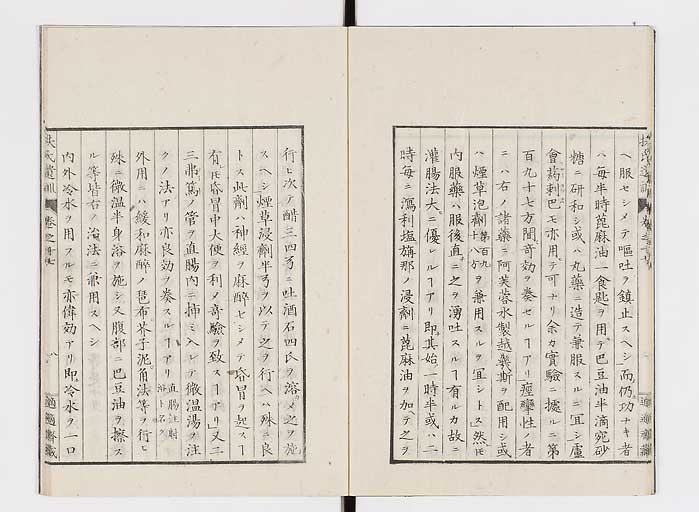 ヘ服セシメテ嘔吐ヲ鎮止スヘシ而仍功ナキ者
ハ毎半時蓖麻油一食匙ヲ用テ巴豆油半滴宛砂
糖ニ研和シ或ハ丸藥ニ造テ兼服スルニ宜シ蘆
會蒟剌巴モ亦用テ可ナリ余カ實驗ニ據ルニ第
百九十七方間奇効ヲ奏セルヿアリ痙攣性ノ者
ニハ右ノ諸藥ニ阿芙蓉水製越幾斯ヲ配用シ或
ハ煙草泡劑第百九十八方ヲ兼用スルヲ宜シトス然𪜈
内服藥ハ服後直ニ之ヲ湧吐スルヿ有ルカ故ニ
灌腸法大ニ優レルヿアリ即其始一時半或ハ二
時毎ニ瀉利塩旃那ノ浸劑ニ蓖麻油ヲ加テ之ヲ
行ヒ次テ醋三四弓ニ吐酒石四氏ヲ溶メ之ヲ施
スヘシ煙草浸劑半弓ヲ以テ之ヲ行ヘハ殊ニ良
トス此劑ハ神經ヲ麻醉セシメテ昏冒ヲ起スヿ
有𪜈昏冒中大便ヲ利メ奇驗ヲ致スヿアリ又二
三幕篤ノ管ヲ直腸内ニ挿ミ入レテ微温湯ヲ注
クノ法アリ亦良効ヲ奏スルヿアリ直腸注射浴ト名ク
外用ニハ緩和麻醉ノ琶布芥子泥角法等ヲ行ヒ
殊ニ微温半身浴ヲ施シ又腹部ニ巴豆油ヲ擦ス
ル等皆右ノ治法ニ兼用スヘシ
内外冷水ヲ用フルモ亦偉効アリ即冷水ヲ一口
扶氏遺訓
卷之十七
八
適適齋藏